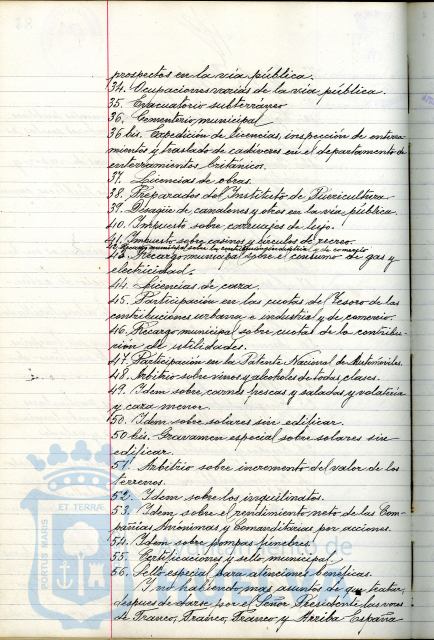 prospectos en la via pública.
34. Ocupaciones varias de la via pública.
35. Evacuatorio subterráneo
36. Cementerio municipal
36 bis. Expedición de licencias, inspección de enterra-
mientos y traslado de cadáveres en el departamento de
enterramientos británicos.
37. Licencias de obras.
38. Preparados del Instituto de Puericultura
39. Desagüe de canalones y otros en la via pública.
40. Impuesto sobre carruajes de lujo.
41. Impuesto sobre casinos y circulos de recreo.
42. Recargo municipal sobre la industrial y de comercio
43. Recargo municipal sobre el consumo de gas y
electricidad.
44. Licencias de caza.
45. Participación en las cuotas de Tesoro de las
contribuciones urbana e industrial y de comercio.
46. Recargo municipal sobre cuotas de la contribu-
ción de utilidades.
47. Participación en la Patente Nacional de Automóviles.
48. Arbitrio sobre vinos y alcoholes de todas clases.
49. Idem sobre carnes frescas y saladas y volateria
y caza menor.
50. Idem sobre solares sin edificar.
50 bis. Gravamen especial sobre solares sin
edificar.
51. Arbitrio sobre incremento del valor de los
terrenos.
52. Idem sobre los inquilinatos.
53. Idem sobre el rendimiento neto de las Com-
pañias Anónimas y Comanditarias por acciones.
54. Idem sobre pompas fúnebres
55. Certificaciones y sello municipal.
56. Sello especial para atenciones benéficas.
Y no habiendo mas asuntos de que tratar,
despues de darse por el Señor Presidente las voces
de Franco, Franco, Franco y Arriba España
PORTUS MARIS ET TERRAE
Ayuntamiento de